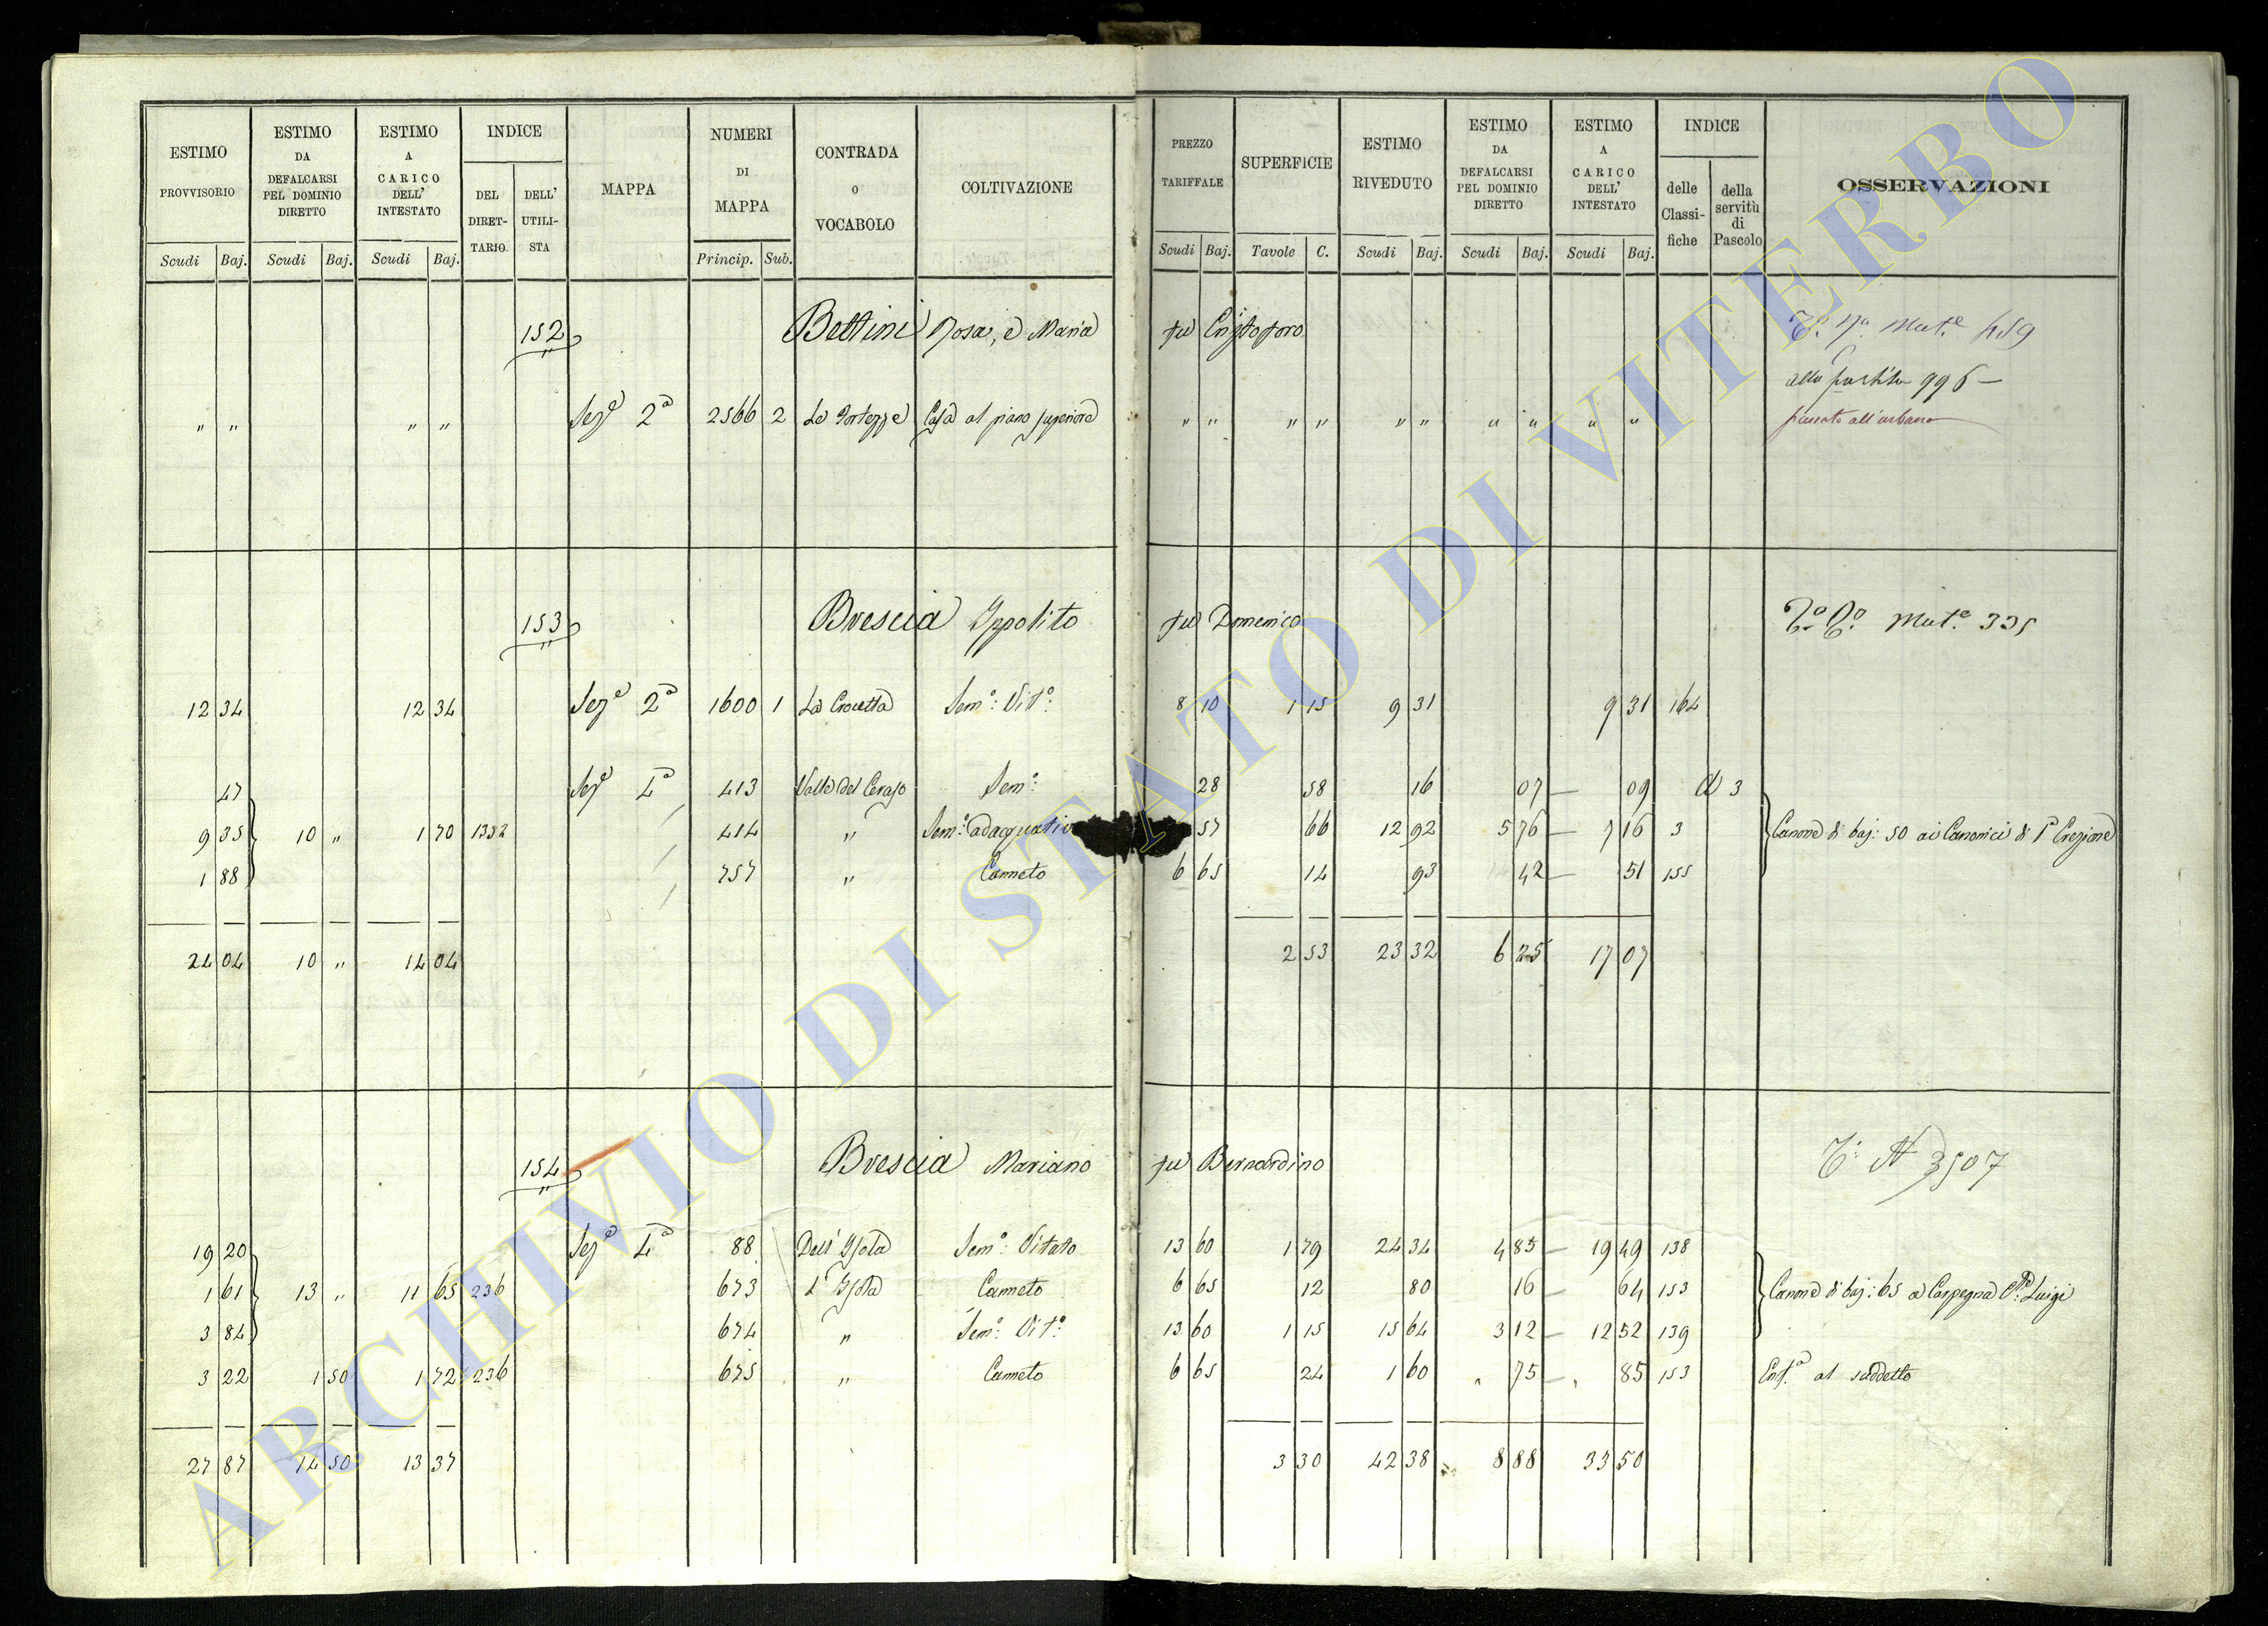 ESTIMO PROVVISORIO Scudi Baj.
ESTIMO DA DEFALCARSI PEL DOMINIO DIRETTO Scudi Baj.
ESTIMO A CARICO DELL' INTESTATO Scudi Baj.
INDICE DEL DIRETTARIO. DELL' UTILISTA
MAPPA
NUMERI DI MAPPA Princip. Sub.
CONTRADA O VOCABOLO
COLTIVAZIONE
PREZZO TARIFFALE Scudi Baj.
SUPERFICIE Tavole C.
ESTIMO RIVEDUTO Scudi Baj.
ESTIMO DA DEFALCARSI PEL DOMINIO DIRETTO Scudi Baj.
ESTIMO A CARICO DELL' INTESTATO Scudi Baj.
INDICE delle Classifiche della servitù di Pascolo
OSSERVAZIONI
152 Bettini Rosa, e Maria fu Cristoforo Mut.e 459
alla partita 996 —
" " " " Sez.e 2a 2566 2 Le Fortezze Casa al piano superiore " " " " " " " " " " passato all'urbano
153 Brescia Ippolito fu Domenico Mut.e 335
12 34 12 34 Sez.e 2a 1600 1 La Crocetta Sem.o Vit.o 8 10 1 15 9 31 9 31 164
47 Sez.e 4a 413 Valle del Ceraso Sem.o 28 58 16 07 — 09 3
9 35 10 " 1 70 1352 414 " Sem.o adacquativo 57 66 12 92 5 76 — 7 16 3 Canone di baj: 50 ai Canonici di
1 88 757 " Canneto 6 65 14 93 42 — 51 155
24 04 10 " 14 04 2 53 23 32 6 25 17 07
154 Brescia Mariano fu Bernardino 3507
19 20 Sez.e 4a 88 Dell' Isola Sem.o Vitato 13 60 1 79 24 34 4 85 — 19 49 138
1 61 13 " 11 65 236 673 L' Isola Canneto 6 65 12 80 16 — 64 153 Canone di baj: 65 a Carpegna Luigi
3 84 674 " Sem.o Vit.o 13 60 1 15 15 64 3 12 — 12 52 139
3 22 1 50 1 72 236 675 " Canneto 6 65 24 1 60 " 75 — " 85 153 al suddetto
27 87 14 50 13 37 3 30 42 38 8 88 33 50
ARCHIVIO DI STATO DI VITERBO